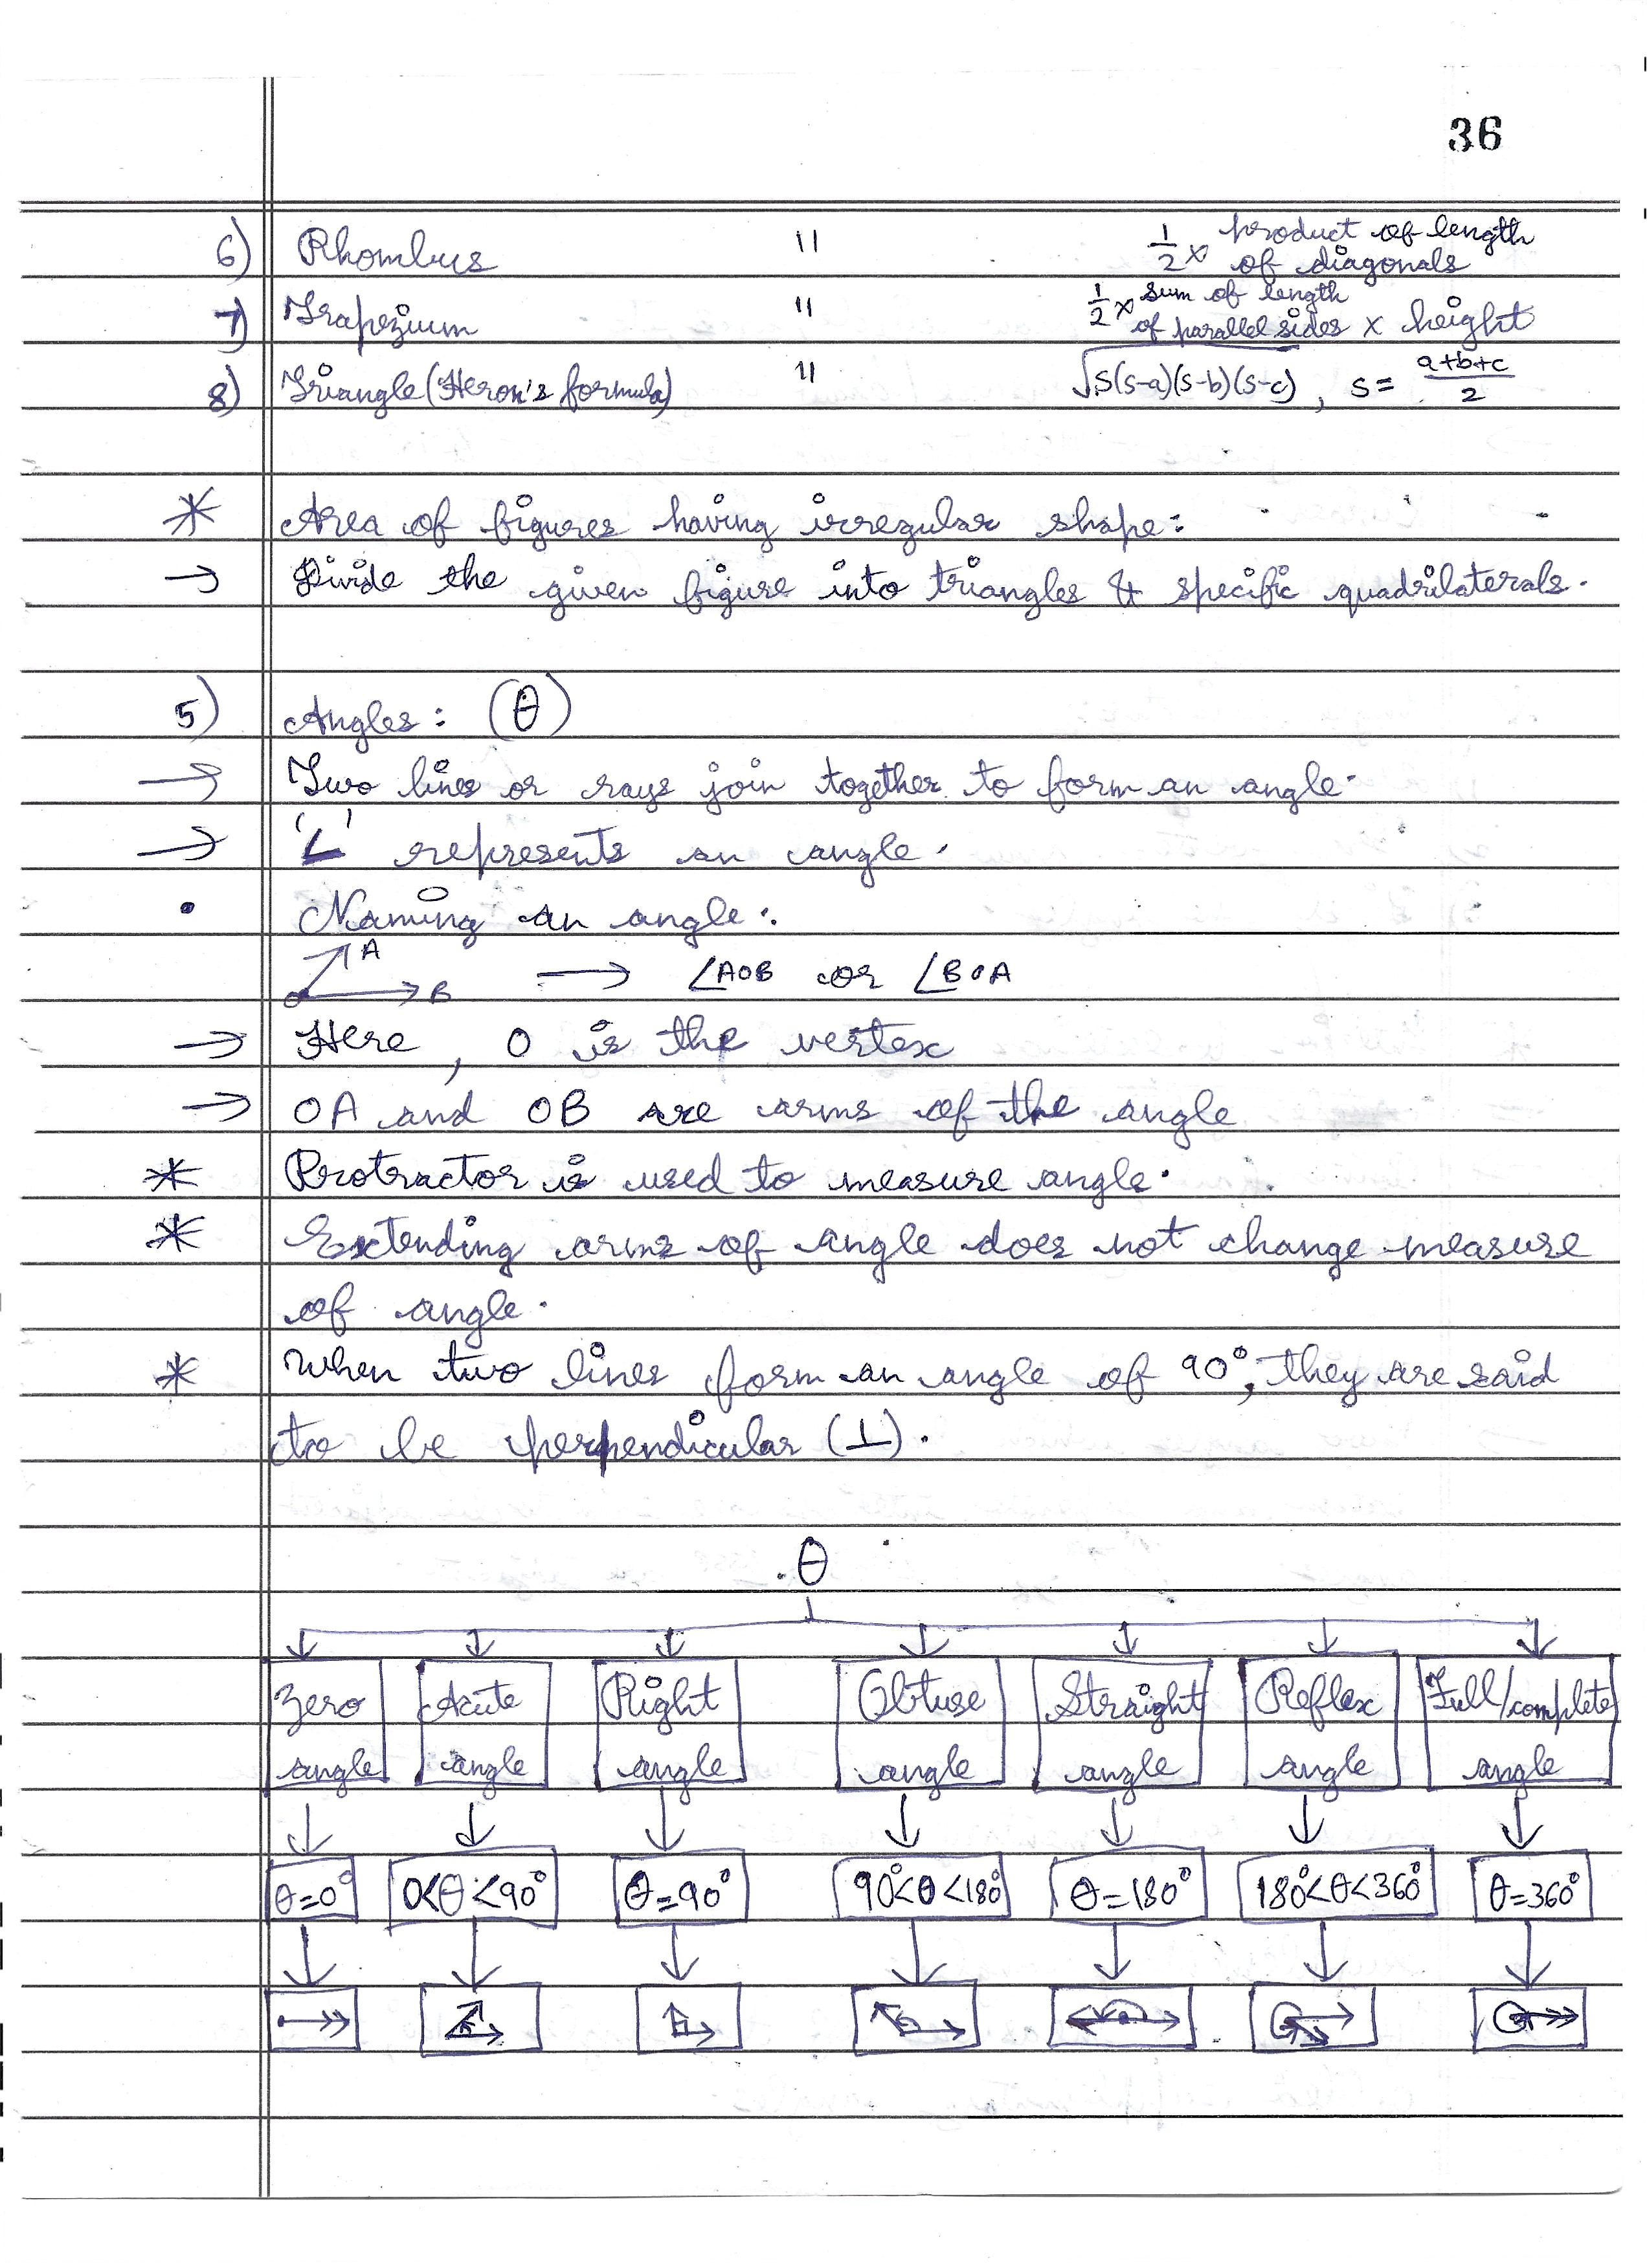 36
6) Rhombus " 1/2 × product of length of diagonals
7) Trapezium " 1/2 × sum of length of parallel sides × height
8) Triangle (Heron's formula) " √S(s-a)(s-b)(s-c) , s = a+b+c/2
* Area of figures having irregular shape:
→ Divide the given figure into triangles & specific quadrilaterals.
5) Angles: (θ)
→ Two lines or rays join together to form an angle.
→ '∠' represents an angle.
• Naming an angle:
A
O B → ∠AOB or ∠BOA
→ Here, O is the vertex
→ OA and OB are arms of the angle
* Protractor is used to measure angle.
* Extending arms of angle does not change measure
of angle.
* When two lines form an angle of 90°, they are said
to be perpendicular (⊥).
θ
Zero angle Acute angle Right angle Obtuse angle Straight angle Reflex angle Full/complete angle
θ=0° 0<θ<90° θ=90° 90°<θ<180° θ=180° 180°<θ<360° θ=360°